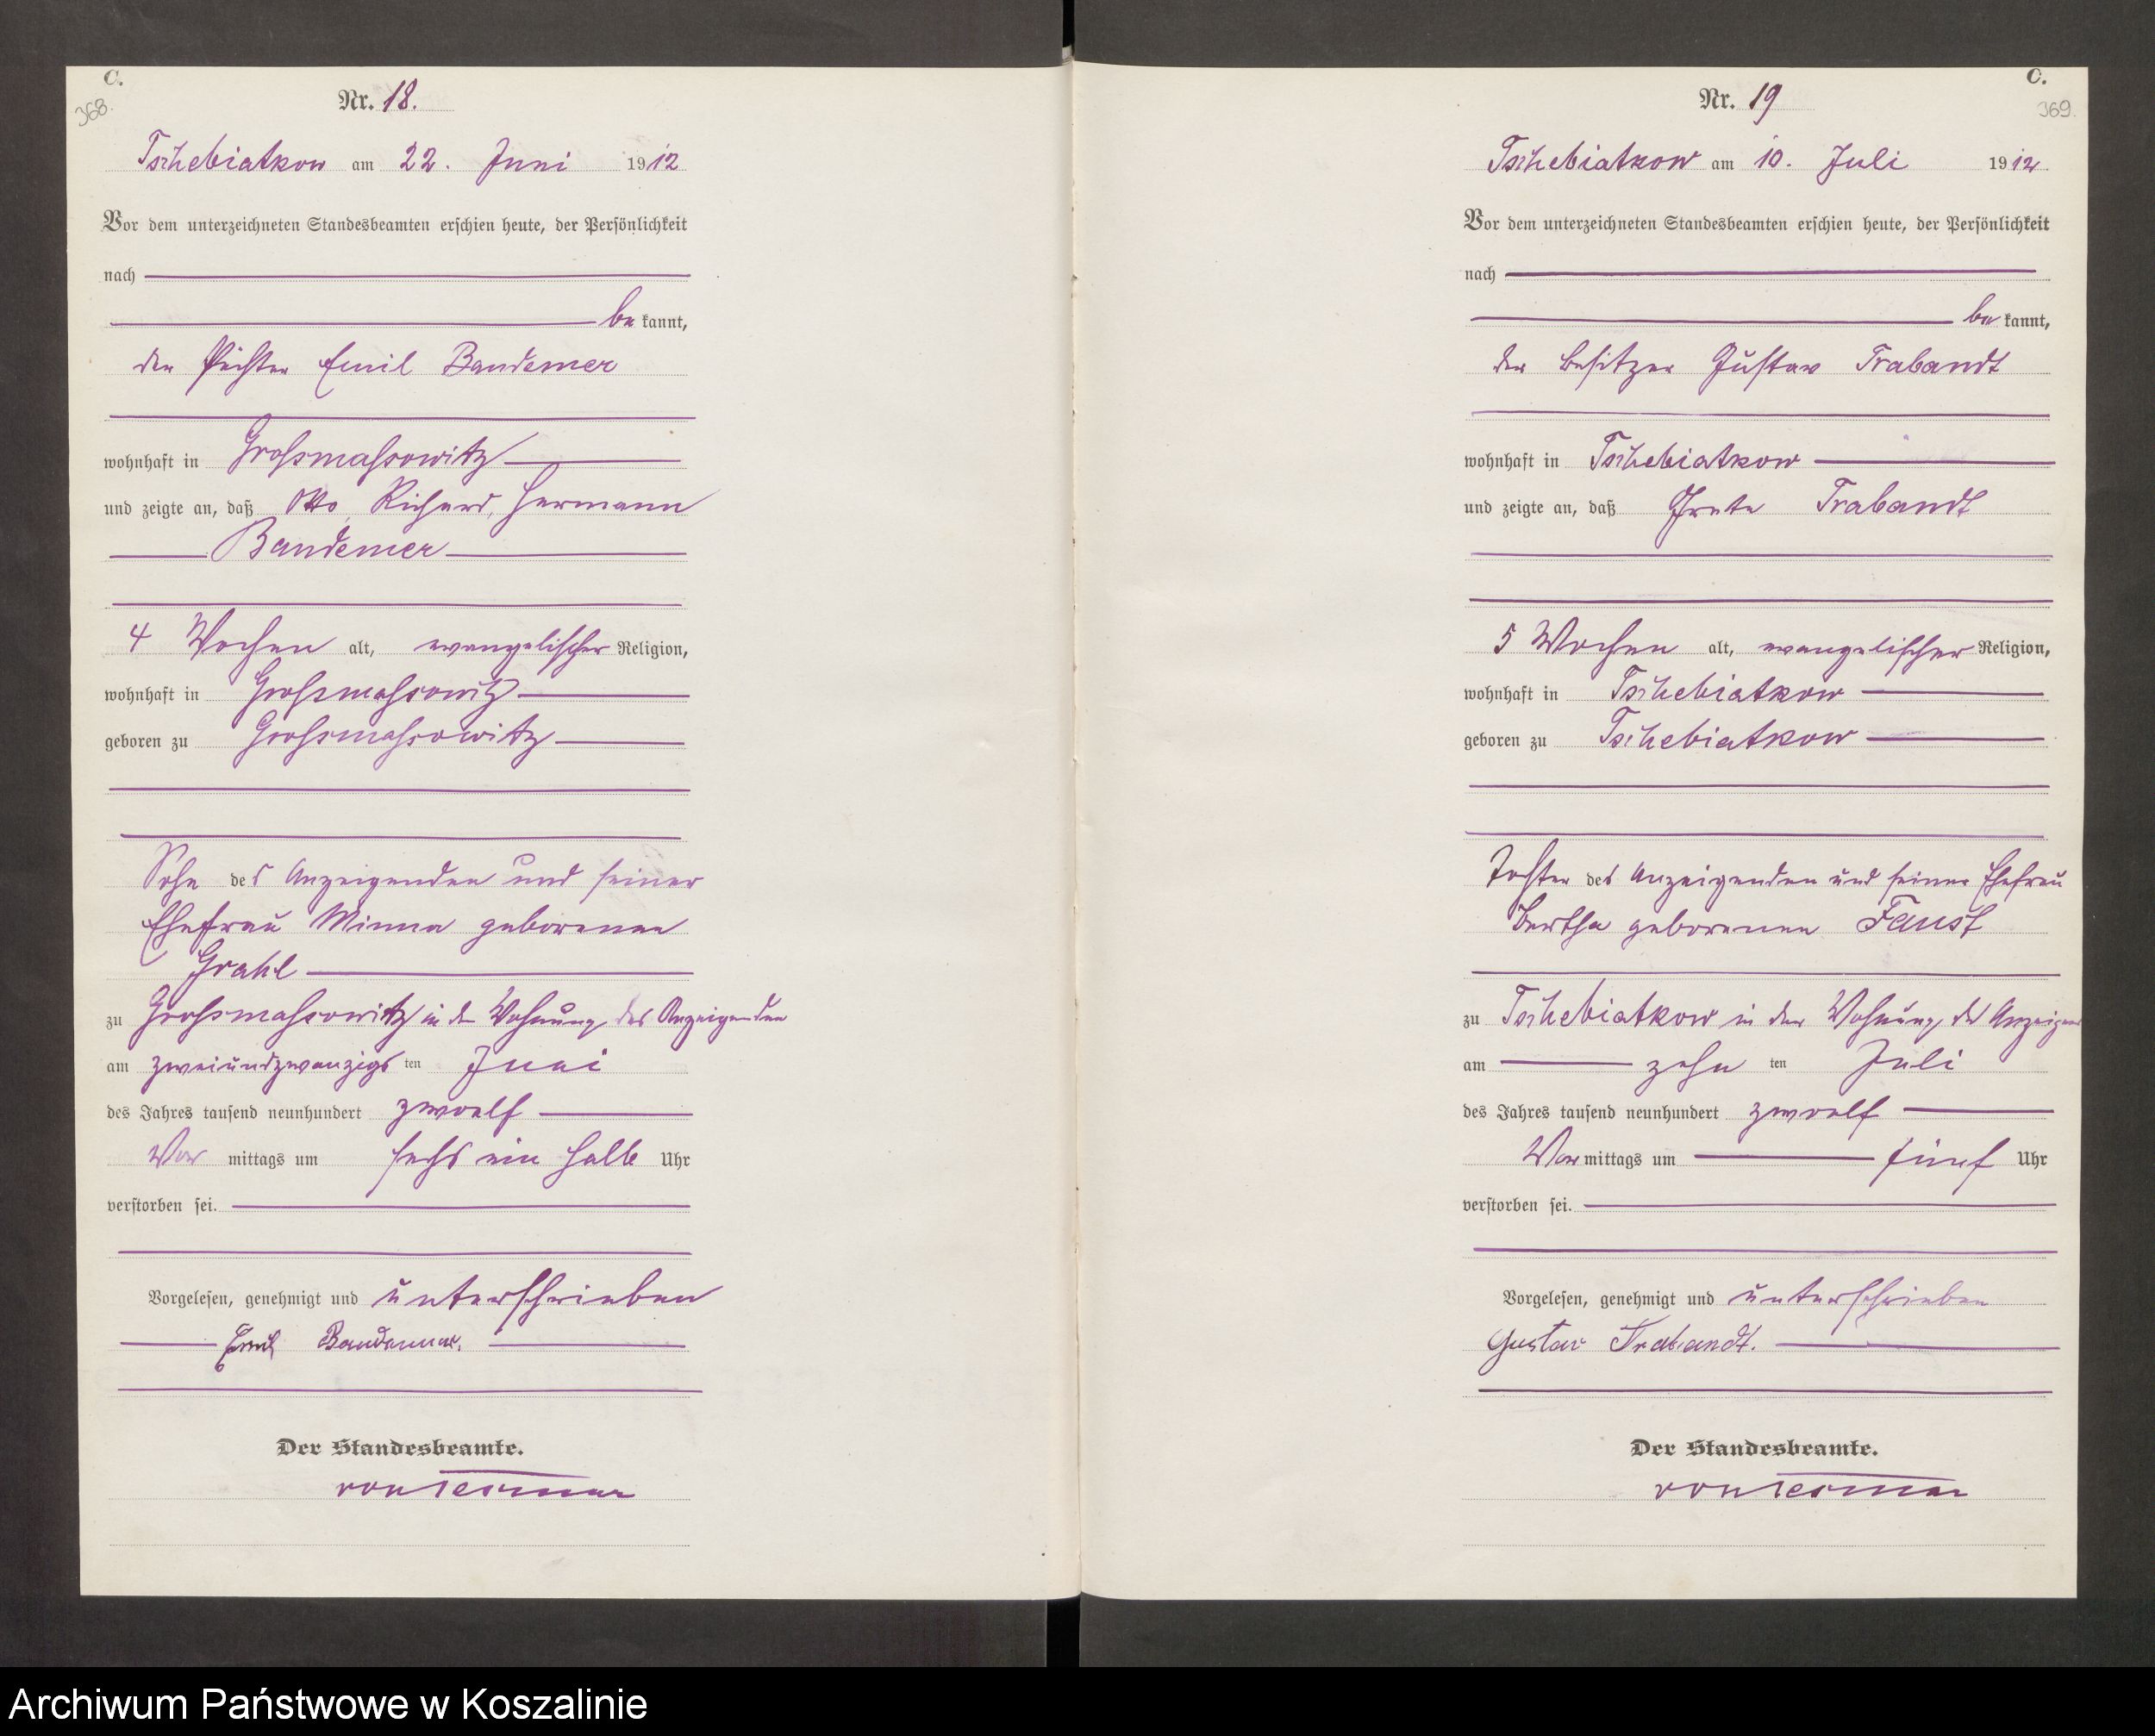 C.
368.
Nr. 18.
Tschebiatkow am 22. Juni 1912
Vor dem unterzeichneten Standesbeamten erschien heute, der Persönlichkeit
nach
bekannt,
der Pächter Emil Bandemer
wohnhaft in Großmassowitz
und zeigte an, daß Otto, Richard, Hermann
Bandemer
4 Wochen alt, evangelischer Religion,
wohnhaft in Großmassowitz
geboren zu Großmassowitz
Sohn des Anzeigenden und seiner
Ehefrau Minna geborenen
Grahl
zu Großmassowitz in der Wohnung des Anzeigenden
am zweiundzwanzigsten Juni
des Jahres tausend neunhundert zwoelf
Vormittags um sechs ein halb Uhr
verstorben sei.
Vorgelesen, genehmigt und unterschrieben
Emil Bandemer.
Der Standesbeamte.
von Tesmar
C.
369.
Nr. 19
Tschebiatkow am 10. Juli 1912
Vor dem unterzeichneten Standesbeamten erschien heute, der Persönlichkeit
nach
bekannt,
der Besitzer Gustav Trabandt
wohnhaft in Tschebiatkow
und zeigte an, daß Grete Trabandt
5 Wochen alt, evangelischer Religion,
wohnhaft in Tschebiatkow
geboren zu Tschebiatkow
Tochter des Anzeigenden und seiner Ehefrau
Bertha geborenen Faust
zu Tschebiatkow in der Wohnung des Anzeigend
am zehnten Juli
des Jahres tausend neunhundert zwoelf
Vormittags um fünf Uhr
verstorben sei.
Vorgelesen, genehmigt und unterschrieben
Gustav Trabandt.
Der Standesbeamte.
von Tesmar
Archiwum Państwowe w Koszalinie